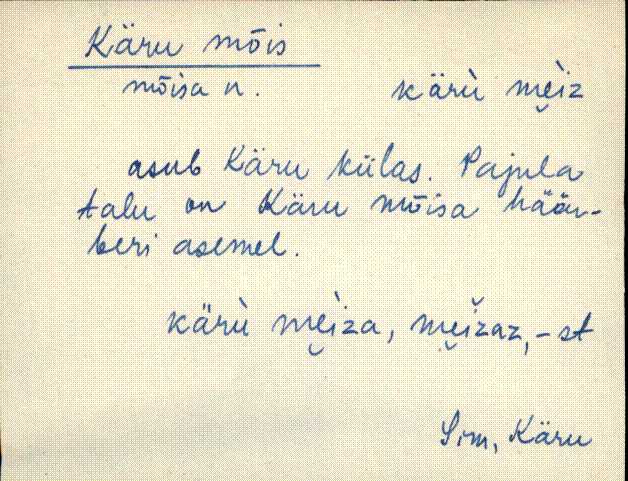 Käru mõis
mõisa n. kärù mèi̯z
asub Käru külas. Pajula
talu on Käru mõisa häär-
beri asemel.
kärù mèi̯za, mèi̯zaz, -st
Sim, Käru